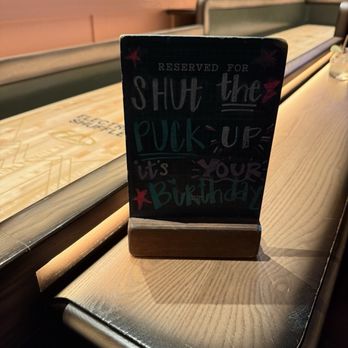 RESERVED FOR
SHUT the
PUCK UP
it's YOUR
Birthday